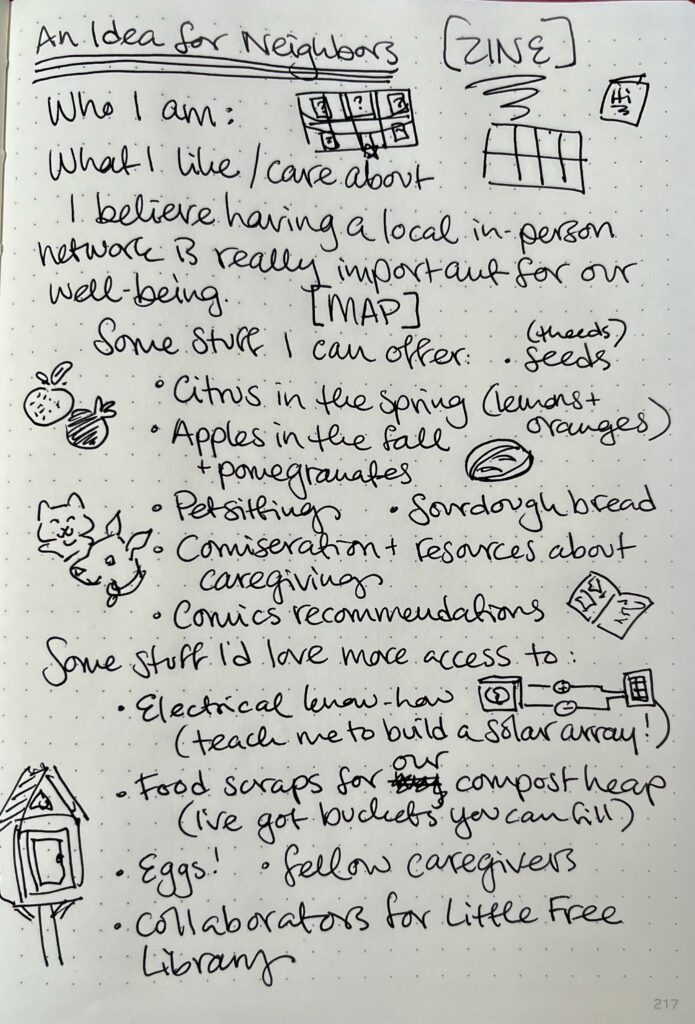 An Idea for Neighbors [ZINE]
Hi
Who I am:
? ? ?
What I like/care about
I believe having a local in-person
network is really important for our
well-being.
[MAP]
Some stuff I can offer:
(theeds)
• seeds
• Citrus in the spring (lemons+
oranges)
• Apples in the fall
+ pomegranates
• Petsitting • Sourdough bread
• Comiseration + resources about
caregiving
• Comics recommendations
Some stuff I'd love more access to:
• Electrical know-how
(teach me to build a solar array!)
• Food scraps for our compost heap
(I've got buckets you can fill)
• Eggs! • fellow caregivers
• Collaborators for Little Free
Library
217